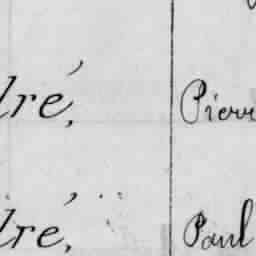 dré, Pierr
dré, Paul